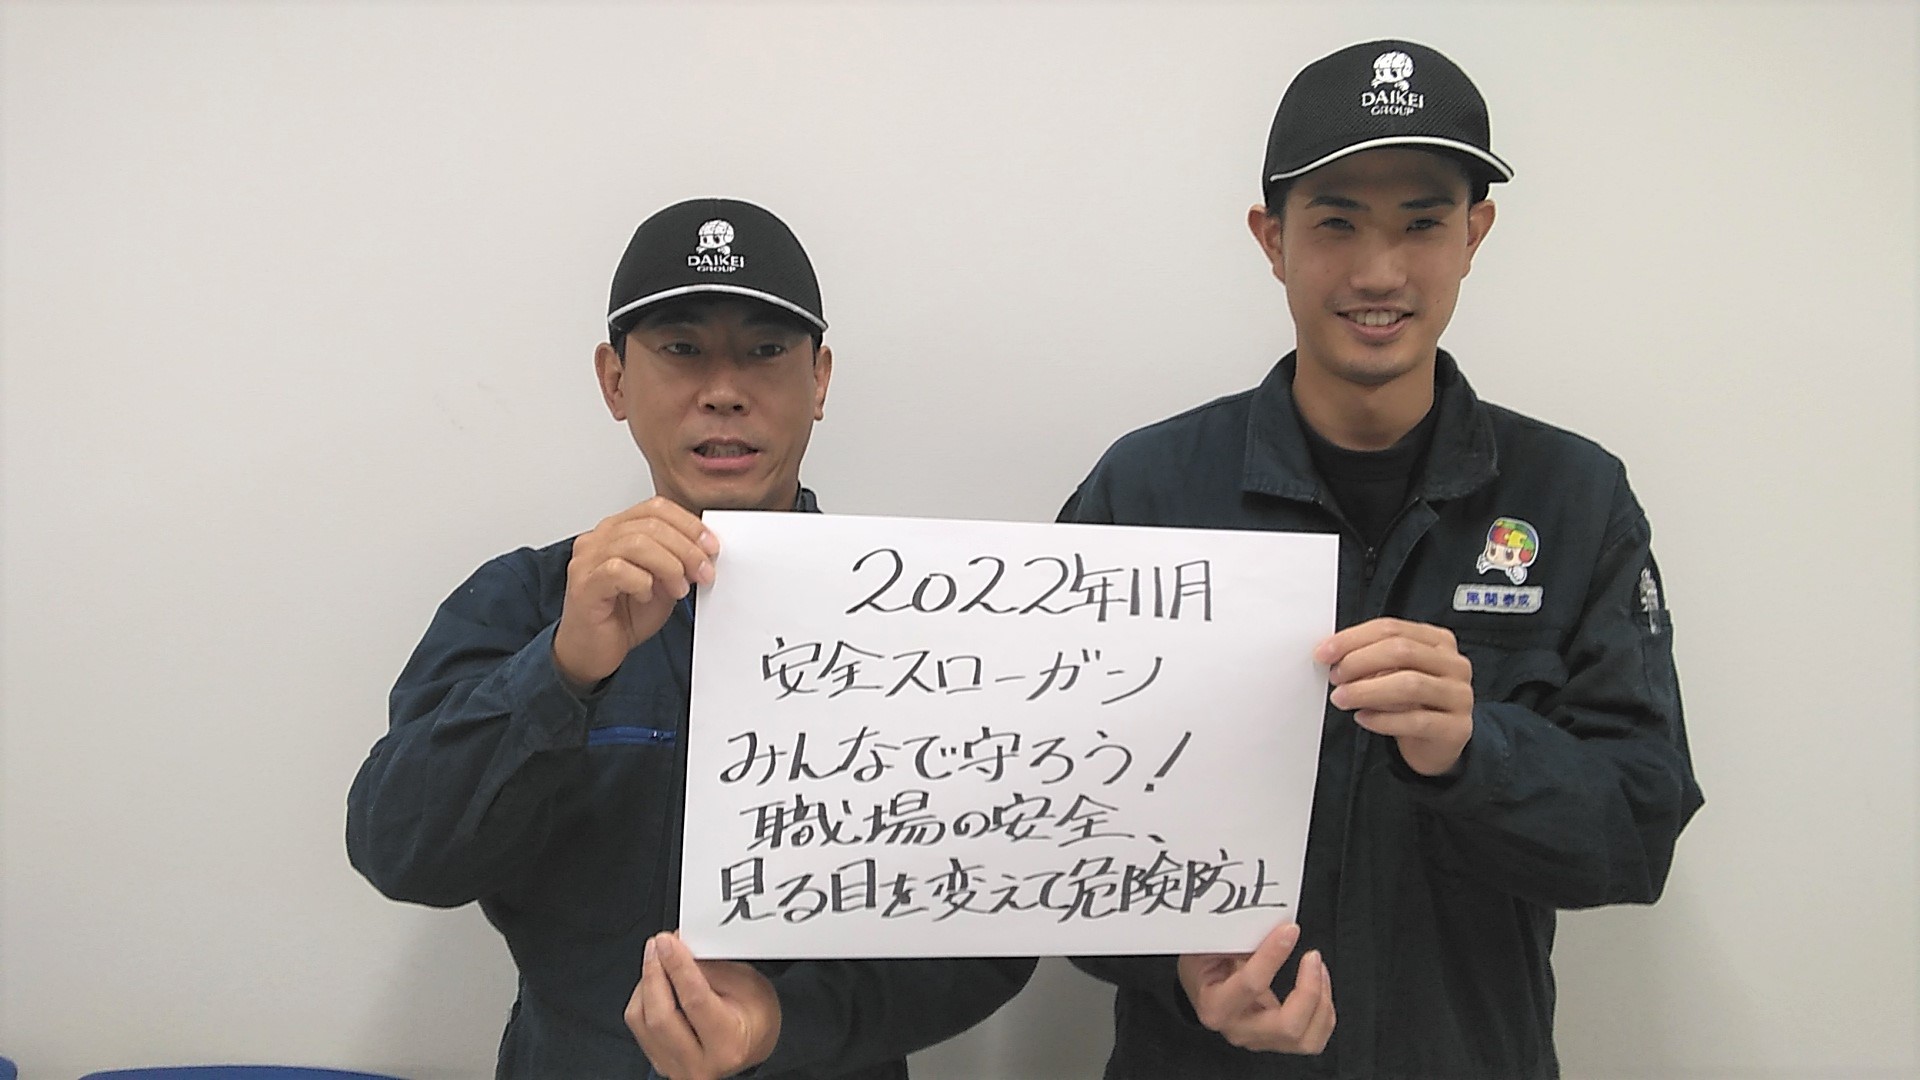 DAIKEI
GROUP
DAIKEI
GROUP
尾関泰成
2022年11月
安全スローガン
みんなで守ろう!
職場の安全、
見る目を変えて危険防止